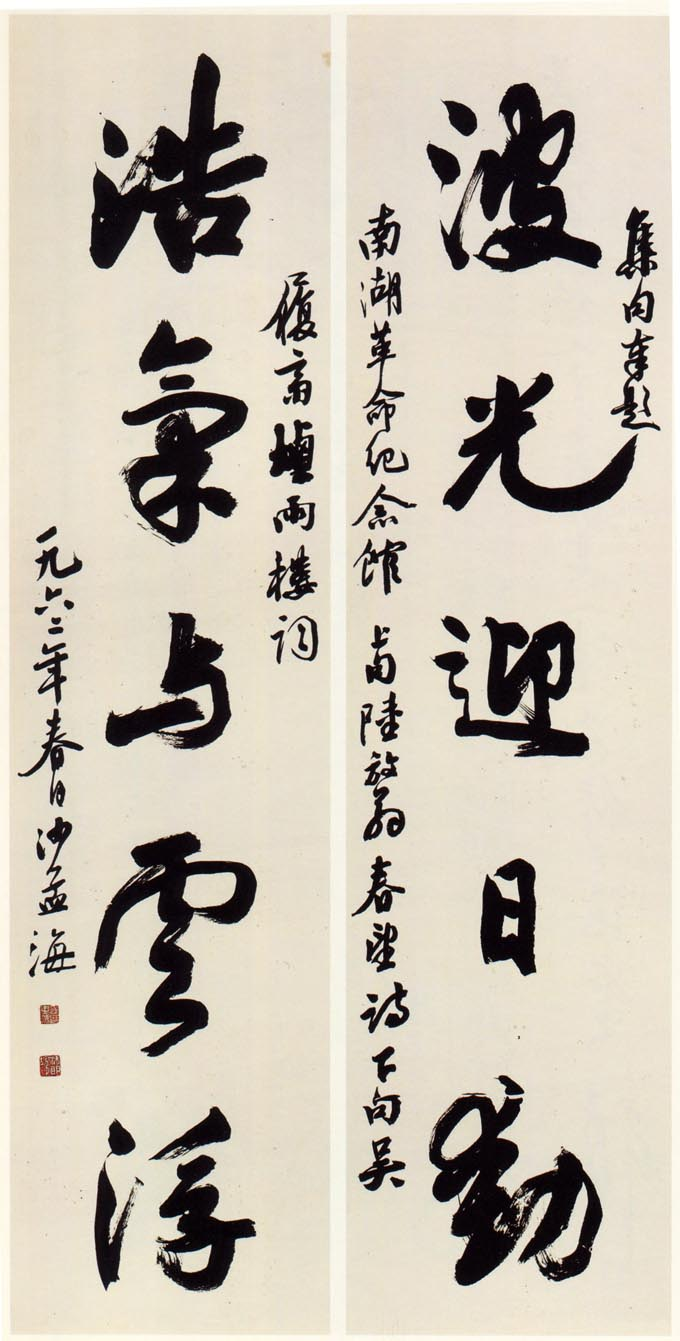 波光迎日動
集句奉題
南湖革命纪念館 上句陸放翁春望詩下句吳
浩氣与雲浮
履齋煙雨樓詞
一九六二年春日沙孟海